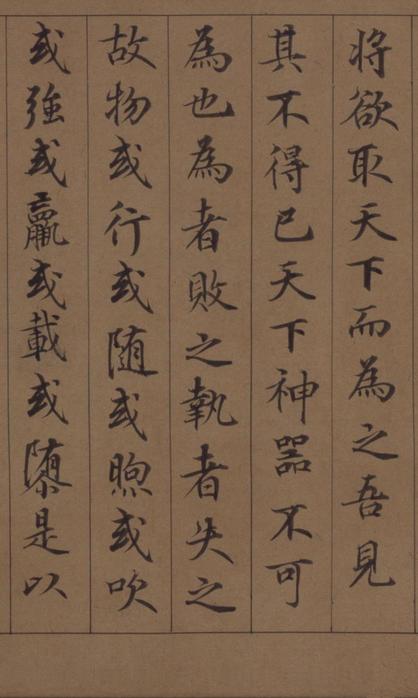 将欲取天下而為之吾見
其不得已天下神器不可
為也為者敗之執者失之
故物或行或随或喣或吹
或強或羸或載或隳是以